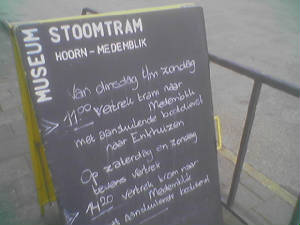 MUSEUM
STOOMTRAM
HOORN - MEDEMBLIK
Van dinsdag t/m zondag
11.00 vertrek tram naar
Medemblik
met aansluitende bootdienst
naar Enkhuizen
Op zaterdag en zondag
tevens vertrek
14.20 vertrek tram naar
Medemblik
aansluitende bootdienst